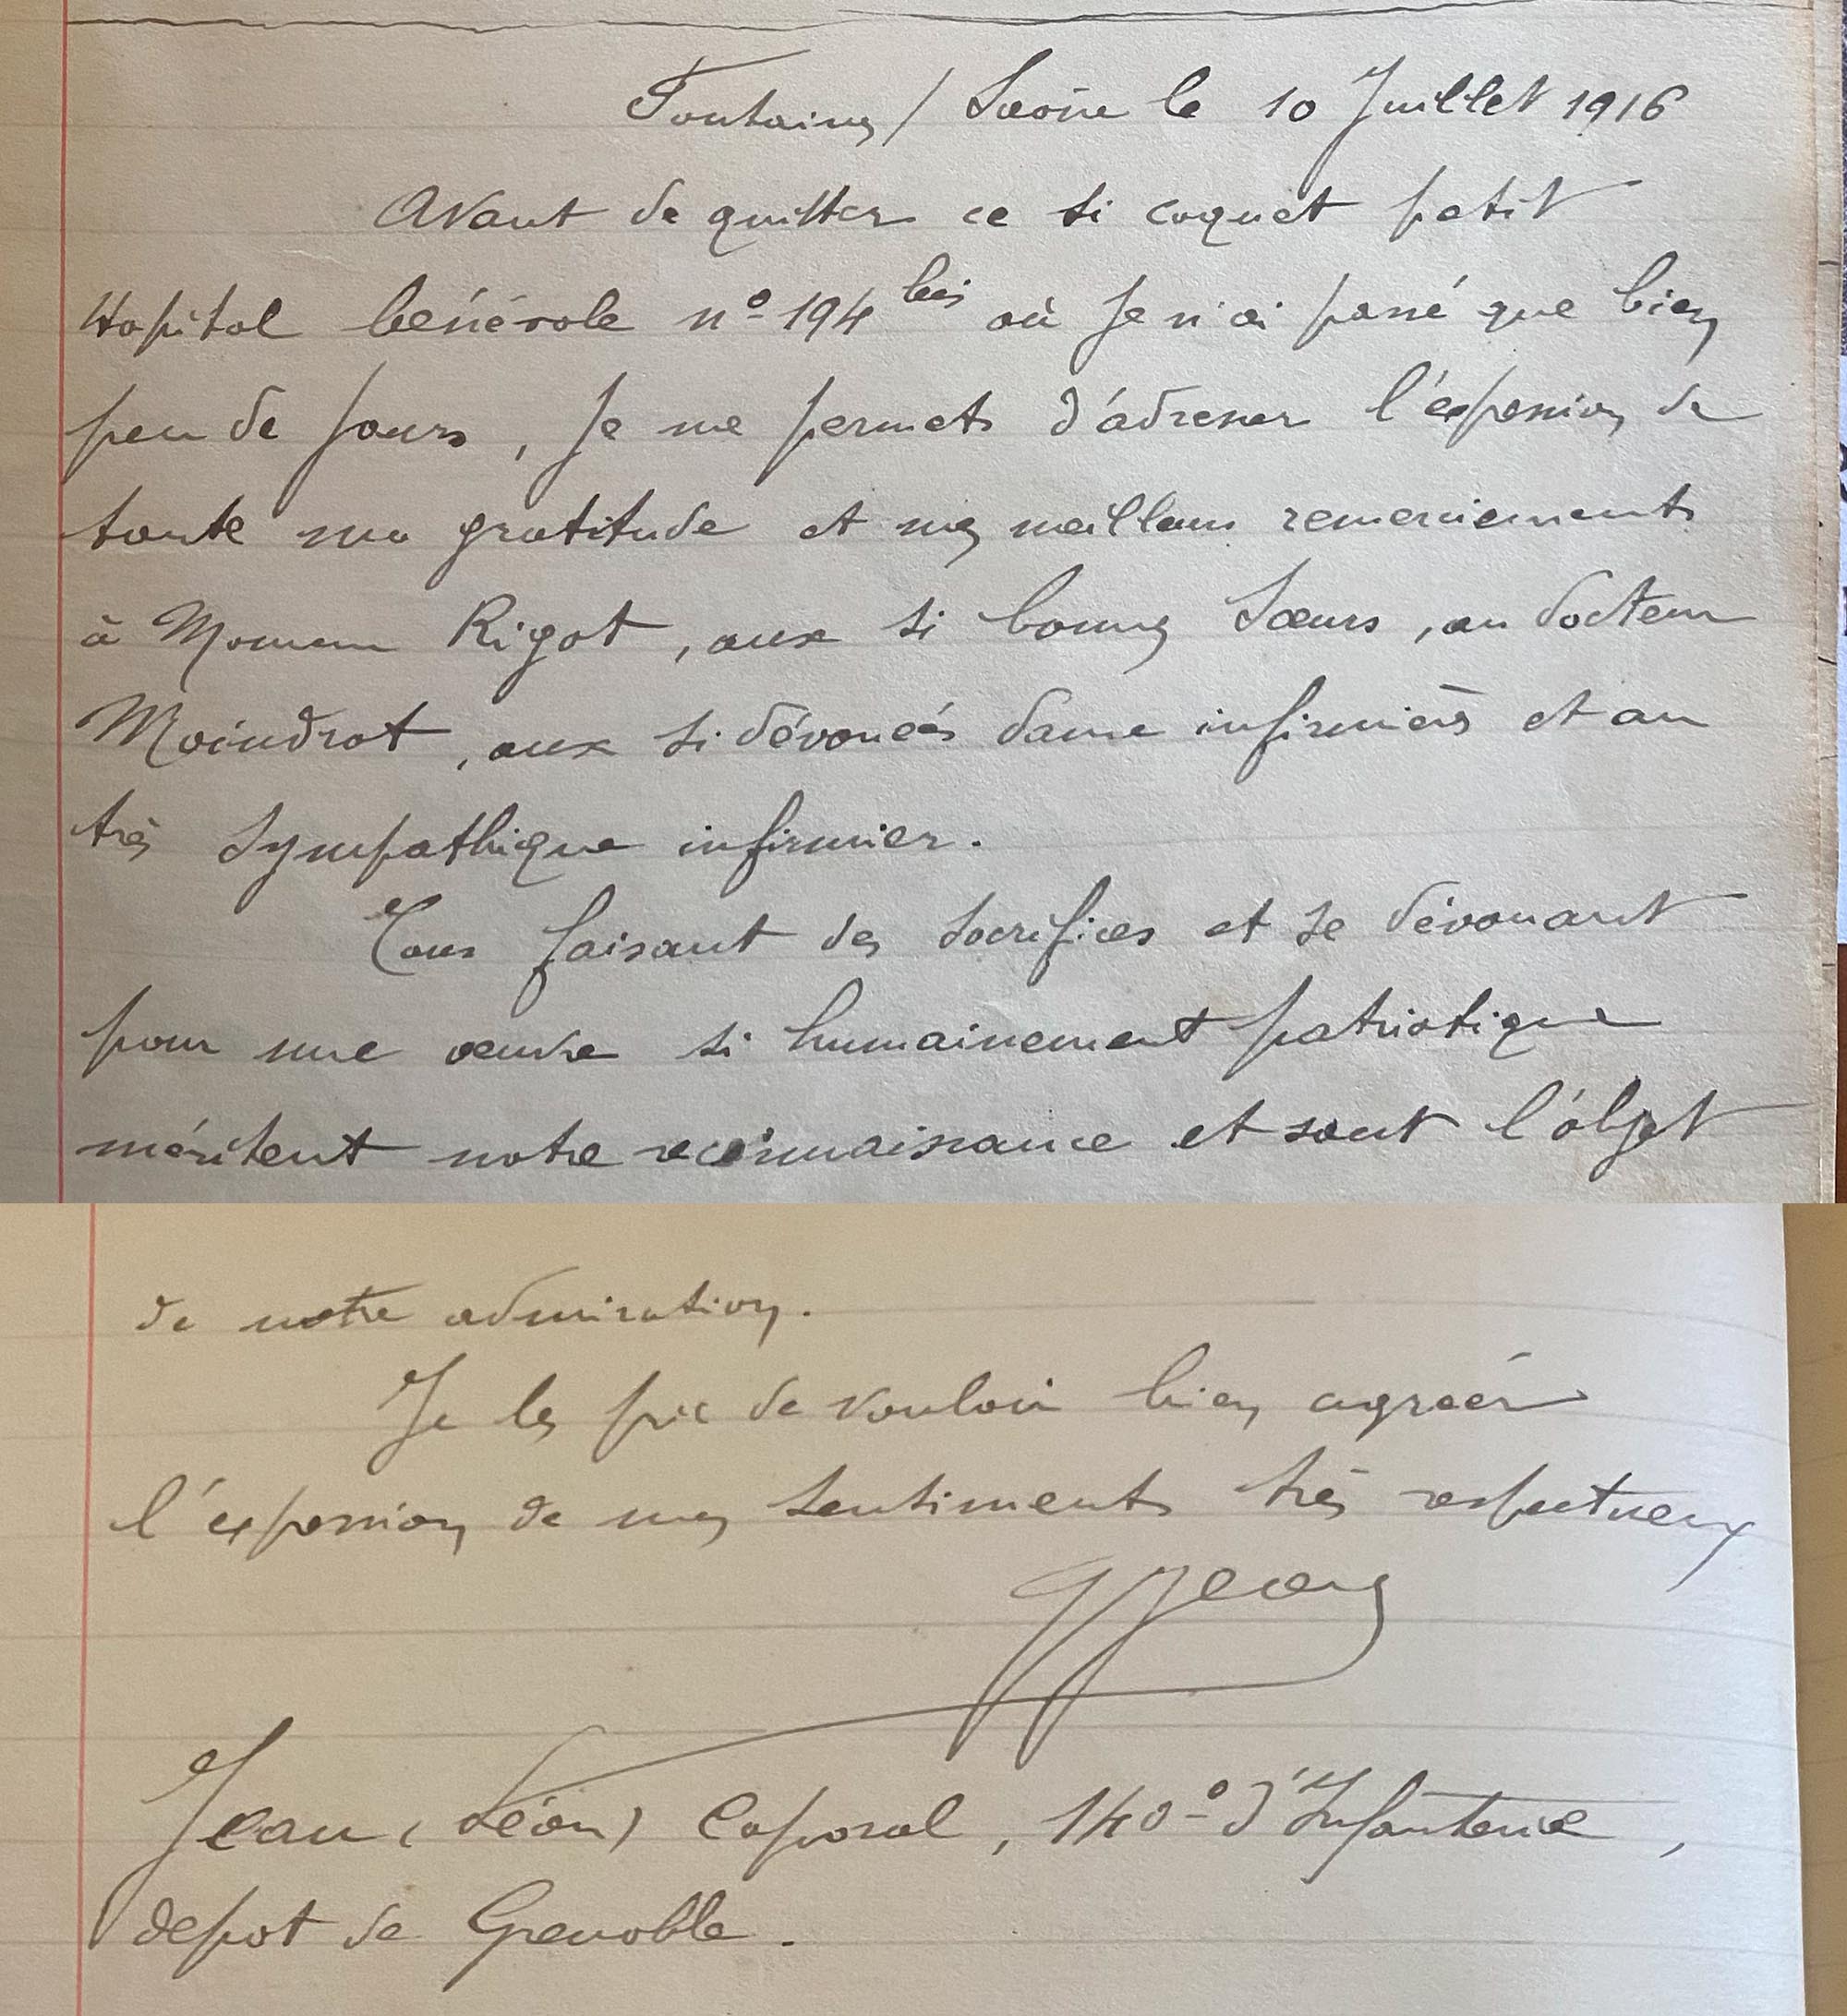 Fontaines / Saône le 10 Juillet 1916
Avant de quitter ce si coquet petit
Hopital bénévole n° 194 bis où Je n'ai passé que bien
peu de Jours, Je me permets d'adresser l'expession de
toute ma gratitude et mes meilleurs remerciements
à Maman Rigot, aux si bonnes Sœurs, au docteur
Moindrot, aux si dévouées dame infirmières et au
très Sympathique infirmier.
Tous faisant des Sacrifices et se dévouant
pour une œuvre si humainement patriotique
méritent notre reconnaissance et sont l'objet
de notre admiration.
Je les prie de vouloir bien agréer
l'expression de mes sentiments très respectueux
Jean
Jean (Léon) Caporal, 140° d'Infanterie,
depot de Grenoble.